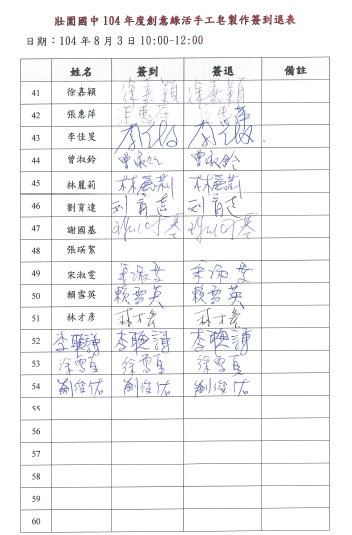 壯圍國中 104 年度創意綠活手工皂製作簽到退表
日期：104 年 8 月 3 日 10:00-12:00
姓名 簽到 簽退 備註
41 徐嘉穎 徐嘉穎 徐嘉穎
42 張惠萍
43 李佳旻
44 曾淑鈴 曾淑鈴 曾淑鈴
45 林麗莉 林麗莉 林麗莉
46 劉育達 刘育達 刘育達
47 謝國基
48 張瑛絜
49 宋淑雯 宋淑雯 宋淑雯
50 賴雪英 賴雪英 賴雪英
51 林才彥 林才彥 林才彥
52 李聰謀 李聰謀 李聰謀
53 徐雪貞 徐雪貞 徐雪貞
54 俊佑 俊佑 俊佑
55
56
57
58
59
60